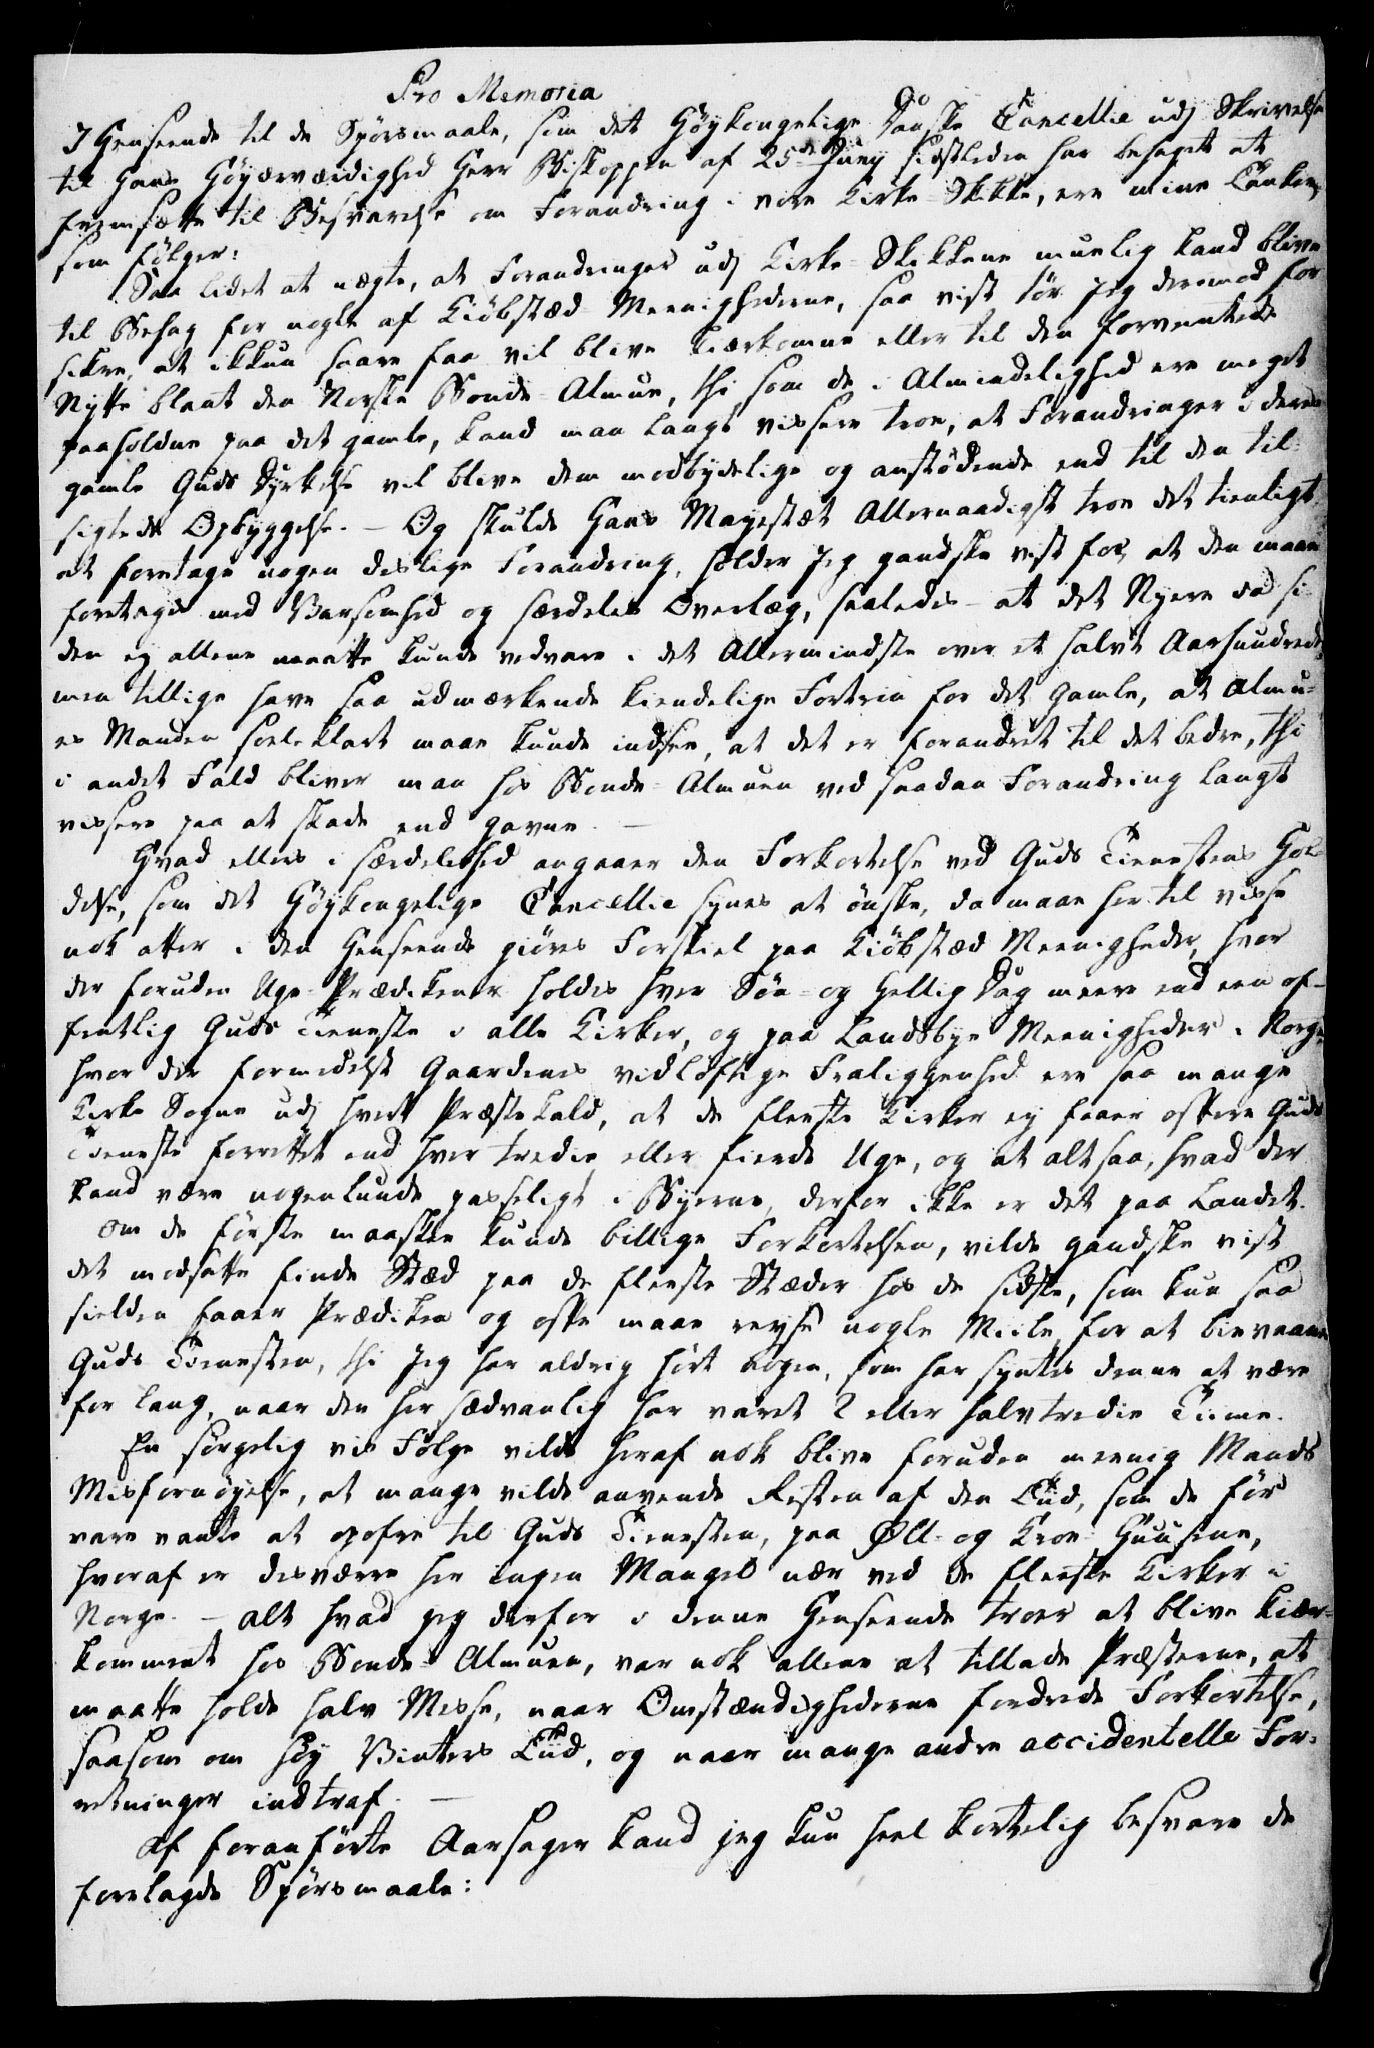 Pro Memoria
I Henseende til de Spörsmaale, som det Höykongelige Danske Cancellie udj Skrivelse
til Hans Höyærværdighed Herr Biskoppen af 25de Juny sidstleden har behaget at
fremsætte til Besvarelse om Forandring i vore Kirke-Skikke, ere mine Tanker
som fölger:
Saa lidet at nægte, at Forandringer udj Kirke-Skikkene muelig kand blive
til Behag for nogle af Kiöbstæd-Meenighederne, saa vist tör Jeg derimod for
sikre, at ikkun saare faa vil blive kiærkomne eller til den forventede
Nytte blant den Norske Bonde-Almue, thi som de i Almindelighed ere meget
paaholdne paa det gamle, kand man langt vissere troe, at Forandringer i deres
gamle Guds Dyrkelse vil blive dem modbydelige og anstödende end til den til-
sigtede Opbyggelse. – Og skulde Hans Mayestæt Allernaadigst troe det tienligt
at foretage nogen deslige Forandring, holder Jeg gandske vist for, at den maae
foretages med Varsomhed og særdeles Overlæg, saaledes – at det Nyere da si-
den ey allene maatte kunde vedvare i det Allermindste over et halvt Aarhundrede,
men tillige have saa udmærkende kiendelige Fortrin for det gamle, at Almu-
es Manden soeleklart maae kunde indsee, at det er forandret til det bedre, thi
i andet Fald bliver man hos Bonde-Almuen ved saadan Forandring langt
vissere paa at skade end gavne. –
Hvad ellers i særdeleshed angaaer den Forkortelse ved Guds Tienestens Hol-
delse, som det Höykongelige Cancellie synes at önske, da maae her til visse
nok atter i den Henseende giöres Forskiel paa Kiöbstæd Meenigheder, hvor
der foruden Uge-Prædikener holdes hver Sön- og Hellig Dag meere end een of-
fentlig Guds Tieneste i alle Kirker, og paa Landsbye Meenigheder i Norge
hvor der formedelst Gaardenes vidlöftige Fraliggenhed ere saa mange
Kirke Sogne udj hvert Præste Kald, at de fleeste Kirker ey faaer oftere Guds
Tieneste forrettet end hver tredie eller fierde Uge, og at altsaa, hvad der
kand være nogenlunde passeligt i Byerne, derfor ikke er det paa Landet.
Om de förste maaskee kunde billige Forkortelsen, vilde gandske vist
det modsatte finde Stæd paa de fleeste Stæder hos de sidste, som kun saa
sielden faaer Prædiken og ofte maae reyse nogle Miile, for at bievaane
Guds Tienesten, thi Jeg har aldrig hört nogen, som har syntes denne at være
for lang, naar den her sædvanlig har varet 2 eller halvtredie Tiime.
En sörgelig vis Fölge vilde heraf nok blive foruden meenig Mands
Misfornöyelse, at mange vilde anvende Resten af den Tiid, som de för
vare vante at opofre til Guds Tienesten, paa Öll- og Kroe Huusene,
hvoraf er desværre her ingen Mangel nær ved de fleeste Kirker i
Norge. – Alt hvad jeg derfor i denne Henseende troer at blive kiær-
kommet hos Bonde-Almuen, var nok allene at tillade Præsterne, at
maatte holde halv Messe, naar Omstændighederne fordrede Forkortelse,
saasom om höy Vinters Tiid, og naar mange andre accidentelle For-
retninger indtraf. –
Af foranförte Aarsager kand jeg kun heel kortelig besvare de
forelagde Spörsmaale: